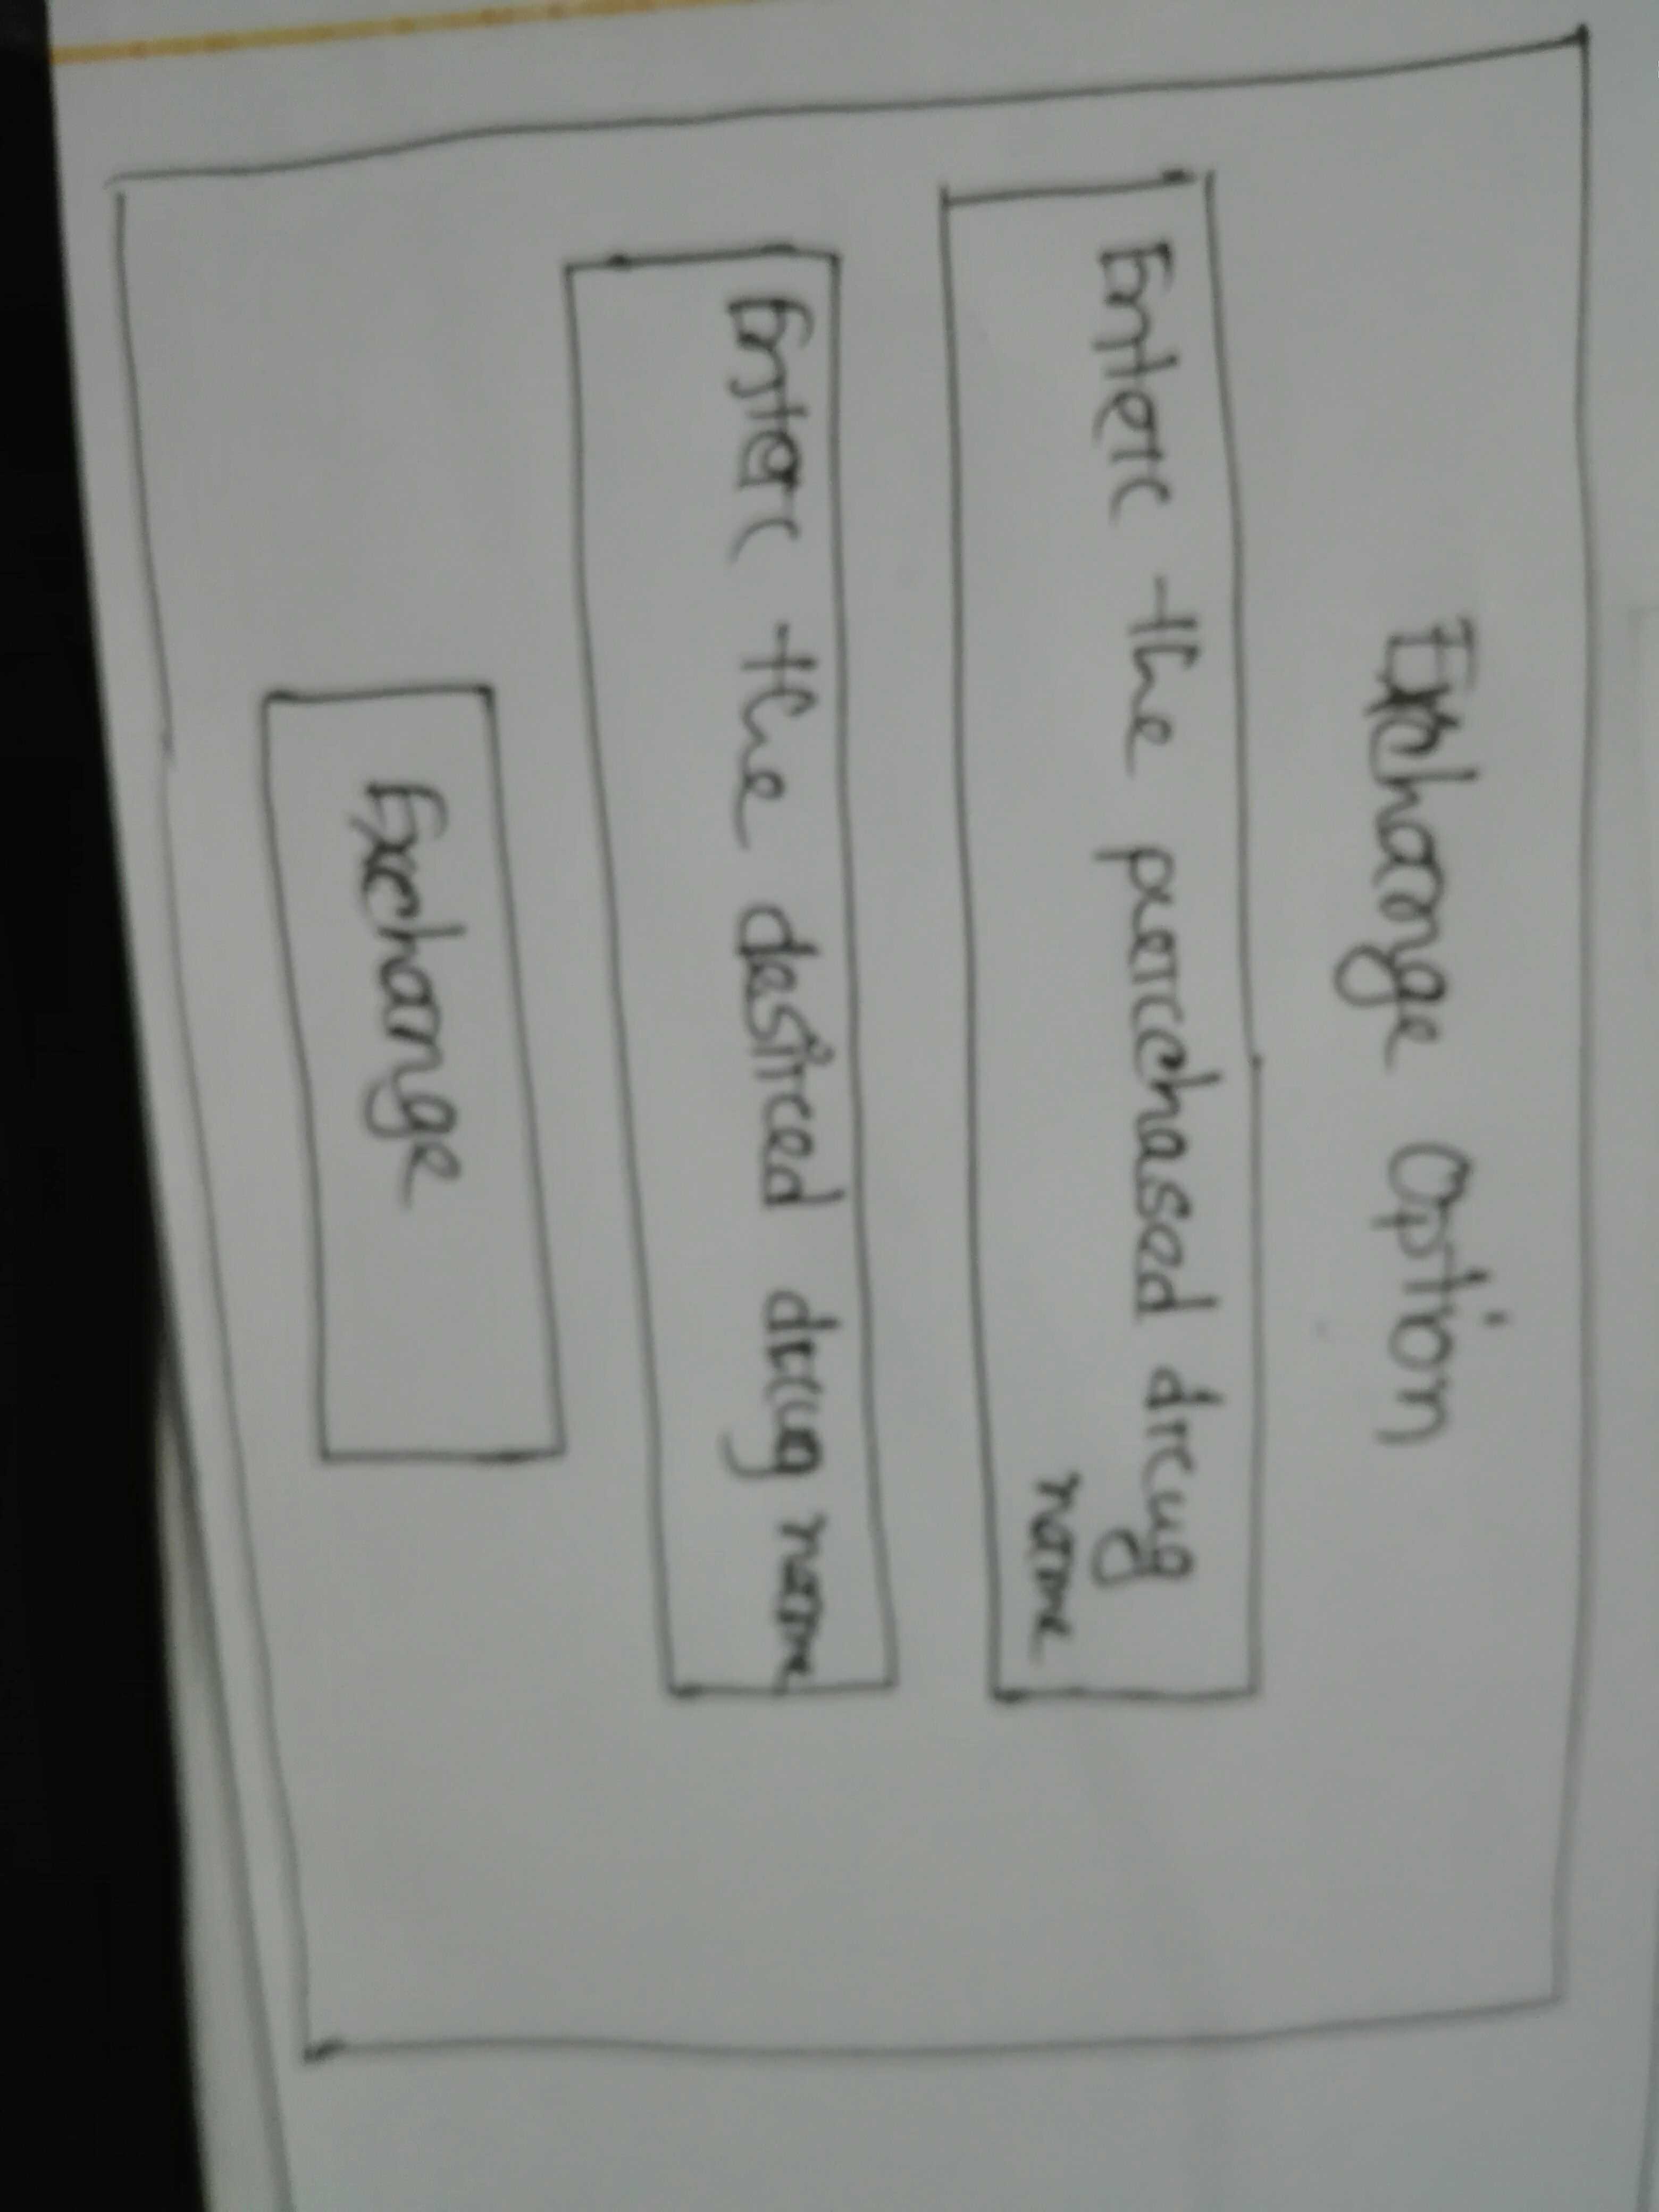 Exchange Option
Enter the purchased drug
name
Enter the desired drug name
Exchange